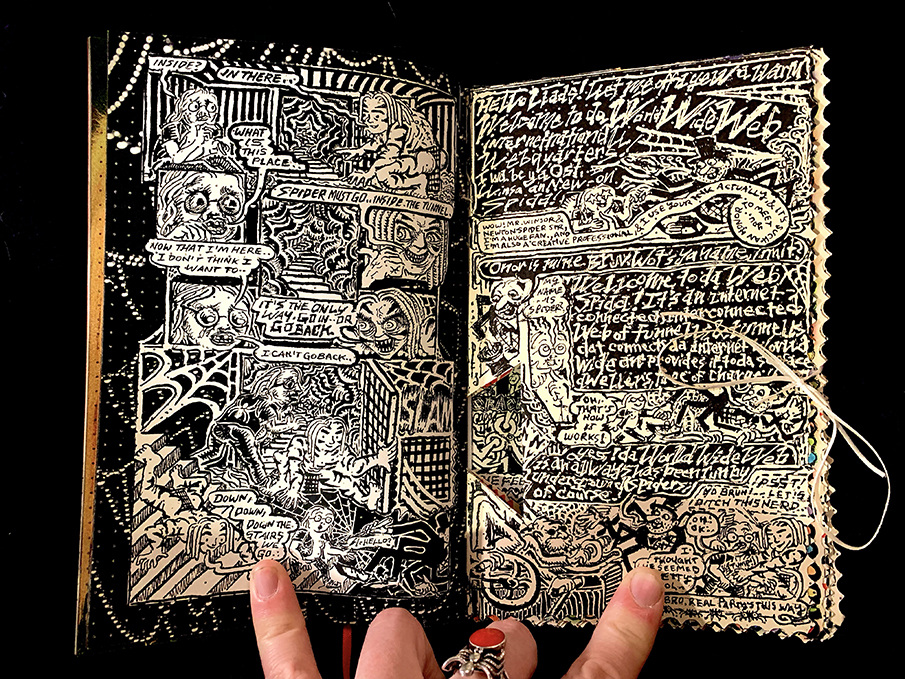 INSIDE?
IN THERE...
WHAT
IS
THIS
PLACE..
SPIDER MUST GO...INSIDE THE TUNNEL
NOW THAT I'M HERE..
I DON'T THINK I
WANT TO..
IT'S THE ONLY
WAY. GO IN-OR
GO BACK.
I CAN'T GO BACK..
DOWN,
DOWN,
DOWN THE
STAIRS
WE
GO..
HELLO?
Hello Liads! Let me a warm
Welcome to da World Wide Web
Internernational
Webquarters!
I will be ya
on
Spider
WOW! MR. WINSOR
NEWTON SPIDER SIR,
I'M A HUGE FAN.. AND
I'M ALSO A CREATIVE PROFESSIONAL
I USE YOUR INK ACTUALLY
is mine
HIS
NAME
IS
SPIDER
Wellcome to da Web
Spider! It's an internet
connected, interconnected
Web of tunnells & tunnells
dat connects da internet world
wide and provides it to da surface
dwellers free of charge
OH,
THAT'S
HOW IT
WORKS!
Yes! da World Wide Web
is and allways has been run by
underground spiders
of course
PSST!
YO BRUH.. LET'S
DITCH THIS NERD
I
THOUGHT
HE SEEMED
BRO. REAL PARTY'S THIS WAY